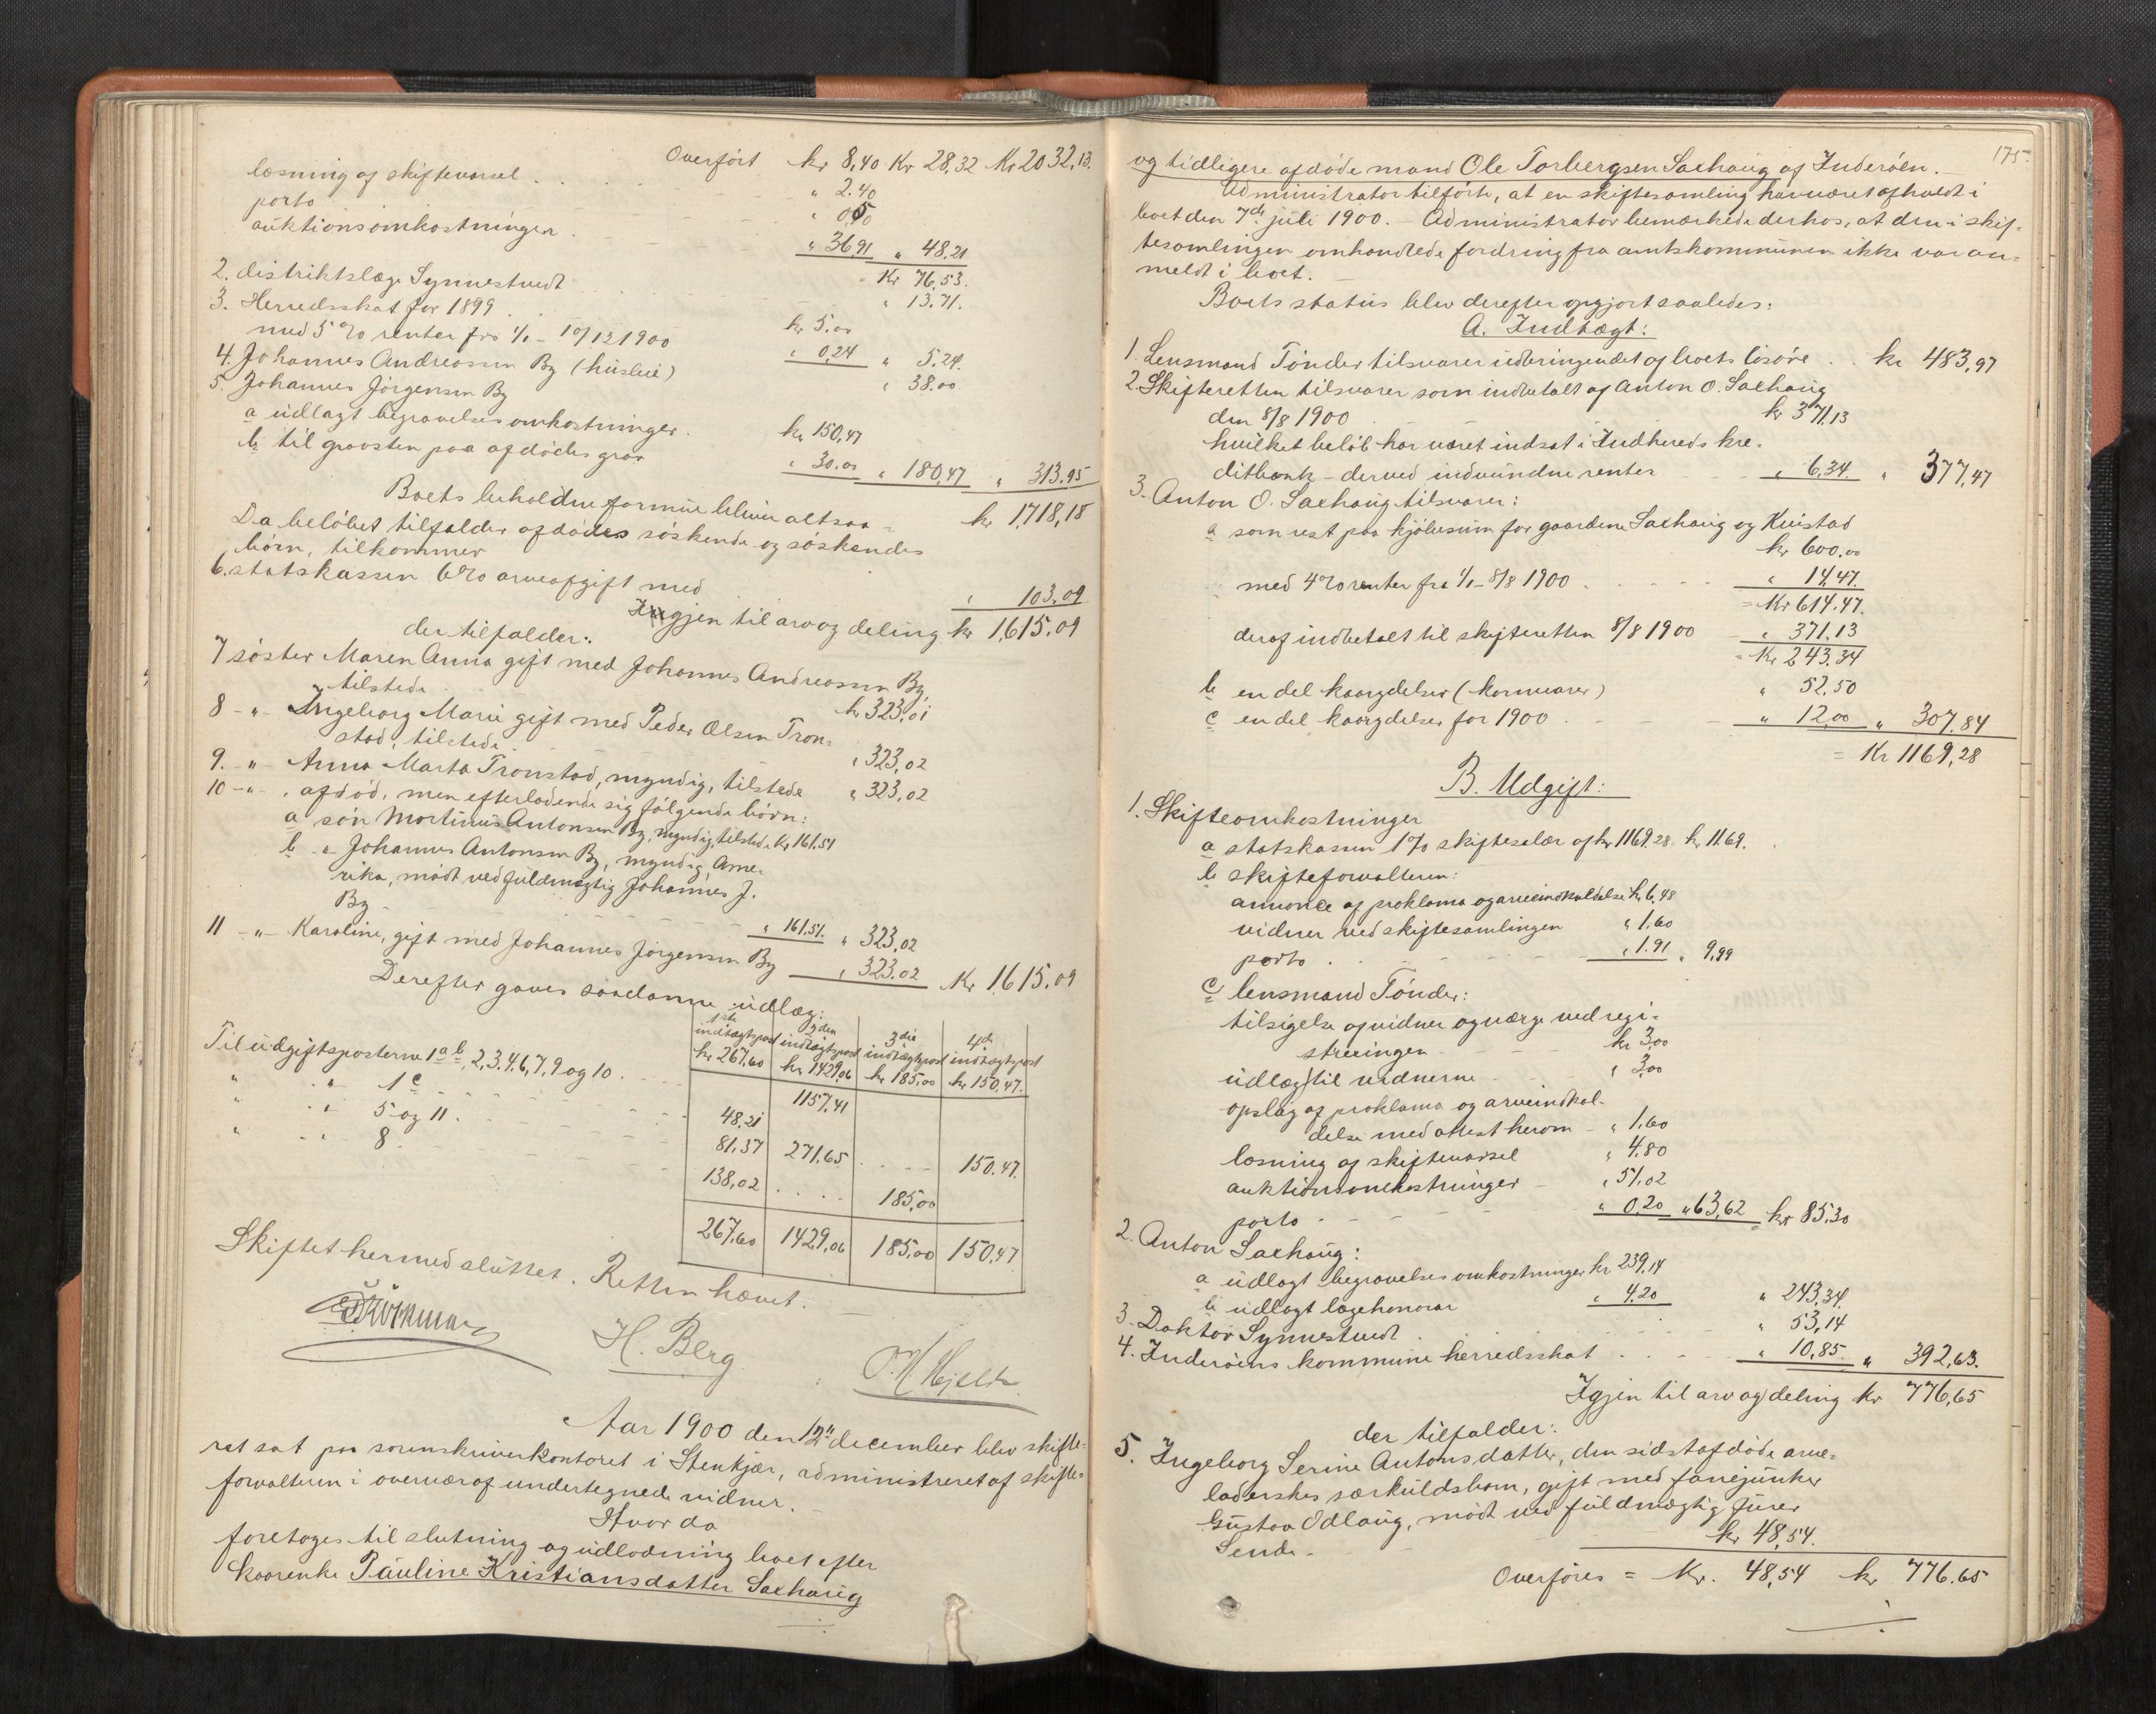 Overført kr 8,40 Kr 28,32 Kr 2032,13.
læsning af skiftevarsel . . . " 2.40
porto " 0,50
auktionsomkostninger . " 36,91 " 48,21
= Kr 76,53.
2. distriktslæge Synnestvedt " 13.71.
3. Herredsskat for 1899 . . kr 5.00
med 5 % renter fra 1/1 - 10/12 1900 " 0,24 " 5,24.
4. Johannes Andreassen By (husleie) " 38.00.
5. Johannes Jørgensen By
a udlagt begravelsesomkostninger . kr 150,47
b til gravsten paa afdødes grav " 30.00 " 180,47 " 313.95
Boets beholdne formue bliver altsaa = kr 1,718,18
Da beløbet tilfalder afdødes søskende og søskendes
børn, tilkommer
6. statskassen 6% arveafgift med " 103,09
Igjen til arv og deling kr 1,615.09
der tilfalder:
7 søster Maren Anna gift med Johannes Andreassen By,
tilstede kr 323,01
8 - " - Ingeborg Marie gift med Peder Olsen Tron-
stad, tilstede . " 323,02
9. - " - Anna Marta Tronstad, myndig, tilstede " 323,02
10 - " - , afdød, men efterladende sig følgende børn:
a søn Martinus Antonsen By, myndig, tilstede Kr 161.51
b " Johannes Antonsen By, myndig, Ame-
rika, mødt ved fuldmægtig Johannes J.
By - " 161.51. " 323,02
11 - " - Karoline, gift med Johannes Jørgensen By " 323.02 Kr 1615,09
Derefter gaves saadanne udlæg:
1ste indtægtspost kr 267,60 2den indtægtspost kr 1429,06 3die indtægtspost kr 185,00 4de indtægtspost kr 150,47.
Til udgiftsposterne 1 a b, 2, 3, 4, 6, 7, 9 og 10 . 1157,41
" " 1 c 48,21
" " 5 og 11 . 81,37 271,65 150.47.
" " 8 138,02 . . . . 185,00
267,60 1429,06 185,00 150,47
Skiftet hermed sluttet. Retten hævet.
H. Berg
Aar 1900 den 12te december blev skifte-
ret sat paa sorenskriverkontoret i Stenkjær, administreret af skifte-
forvalteren i overvær af undertegnede vidner.
Hvor da
foretoges til slutning og udlodning boet efter
kaarenke Pauline Kristiansdatter Saxhaug
175.
og tidligere afdøde mand Ole Torbergsen Saxhaug af Inderøen.
Administrator tilførte, at en skiftesamling har været afholdt i
boet den 7de juli 1900. - Administrator bemærkede derhos, at den i skif-
tesamlingen omhandlede fordring fra amtskommunen ikke var an-
meldt i boet.
Boets status blev derefter opgjort saaledes:
A. Indtægt:
1. Lensmand Tønder tilsvarer udbringendet af boets løsøre . kr 483,97
2. Skifteretten tilsvarer som indbetalt af Anton O. Saxhaug
den 8/8 1900 kr 371,13
hvilket beløb har været indsat i Indhereds kre-
ditbank - derved indvundne renter " 6,34. " 377,47
3. Anton O. Saxhaug tilsvarer:
a som rest paa kjøbesum for gaardene Saxhaug og Kvistad
kr 600.00
med 4% renter fra 1/1 - 8/8 1900 . " 14,47.
= Kr 614,47.
deraf indbetalt til skifteretten 8/8 1900 " 371,13
= Kr 243,34
b en del kaarydelser (kornvarer) " 52,50
c en del kaarydelser for 1900 . " 12,00 " 307,84
= Kr 1169,28
B. Udgift:
1. Skifteomkostninger
a statskassen 1% skiftesalær af kr 1169,28 kr 11.69.
b skifteforvalteren:
annonce af proklama og arveindkaldelse kr 6,48
vidner ved skiftesamlingen " 1,60
porto . " 1.91 " 9,99
c lensmand Tønder:
tilsigelse af vidner og værge ved regi-
streringen kr 3,00
udlæg til vidnerne " 3,00
opslag af proklama og arveindkal-
delse med attest herom - " 1,60
læsning af skiftevarsel " 4,80
auktionsomkostninger - " 51,02
porto " 0,20 " 63,62 kr 85,30
2. Anton Saxhaug:
a udlagt begravelsesomkostninger kr 239,14
b udlagt lægehonorar " 4,20 " 243,34.
3. Doktor Synnestvedt . " 53,14
4. Inderøens kommune herredsskat . . . " 10,85 " 392,63.
Igjen til arv og deling kr 776,65
der tilfalder:
5. Ingeborg Serine Antonsdatter, den sidst afdøde arve-
laderskes særkuldsbarn, gift med fanejunker
Gustav Odlaug, mødt ved fuldmægtig furer
Sende - kr 48,54.
Overføres = Kr. 48,54 kr 776.65